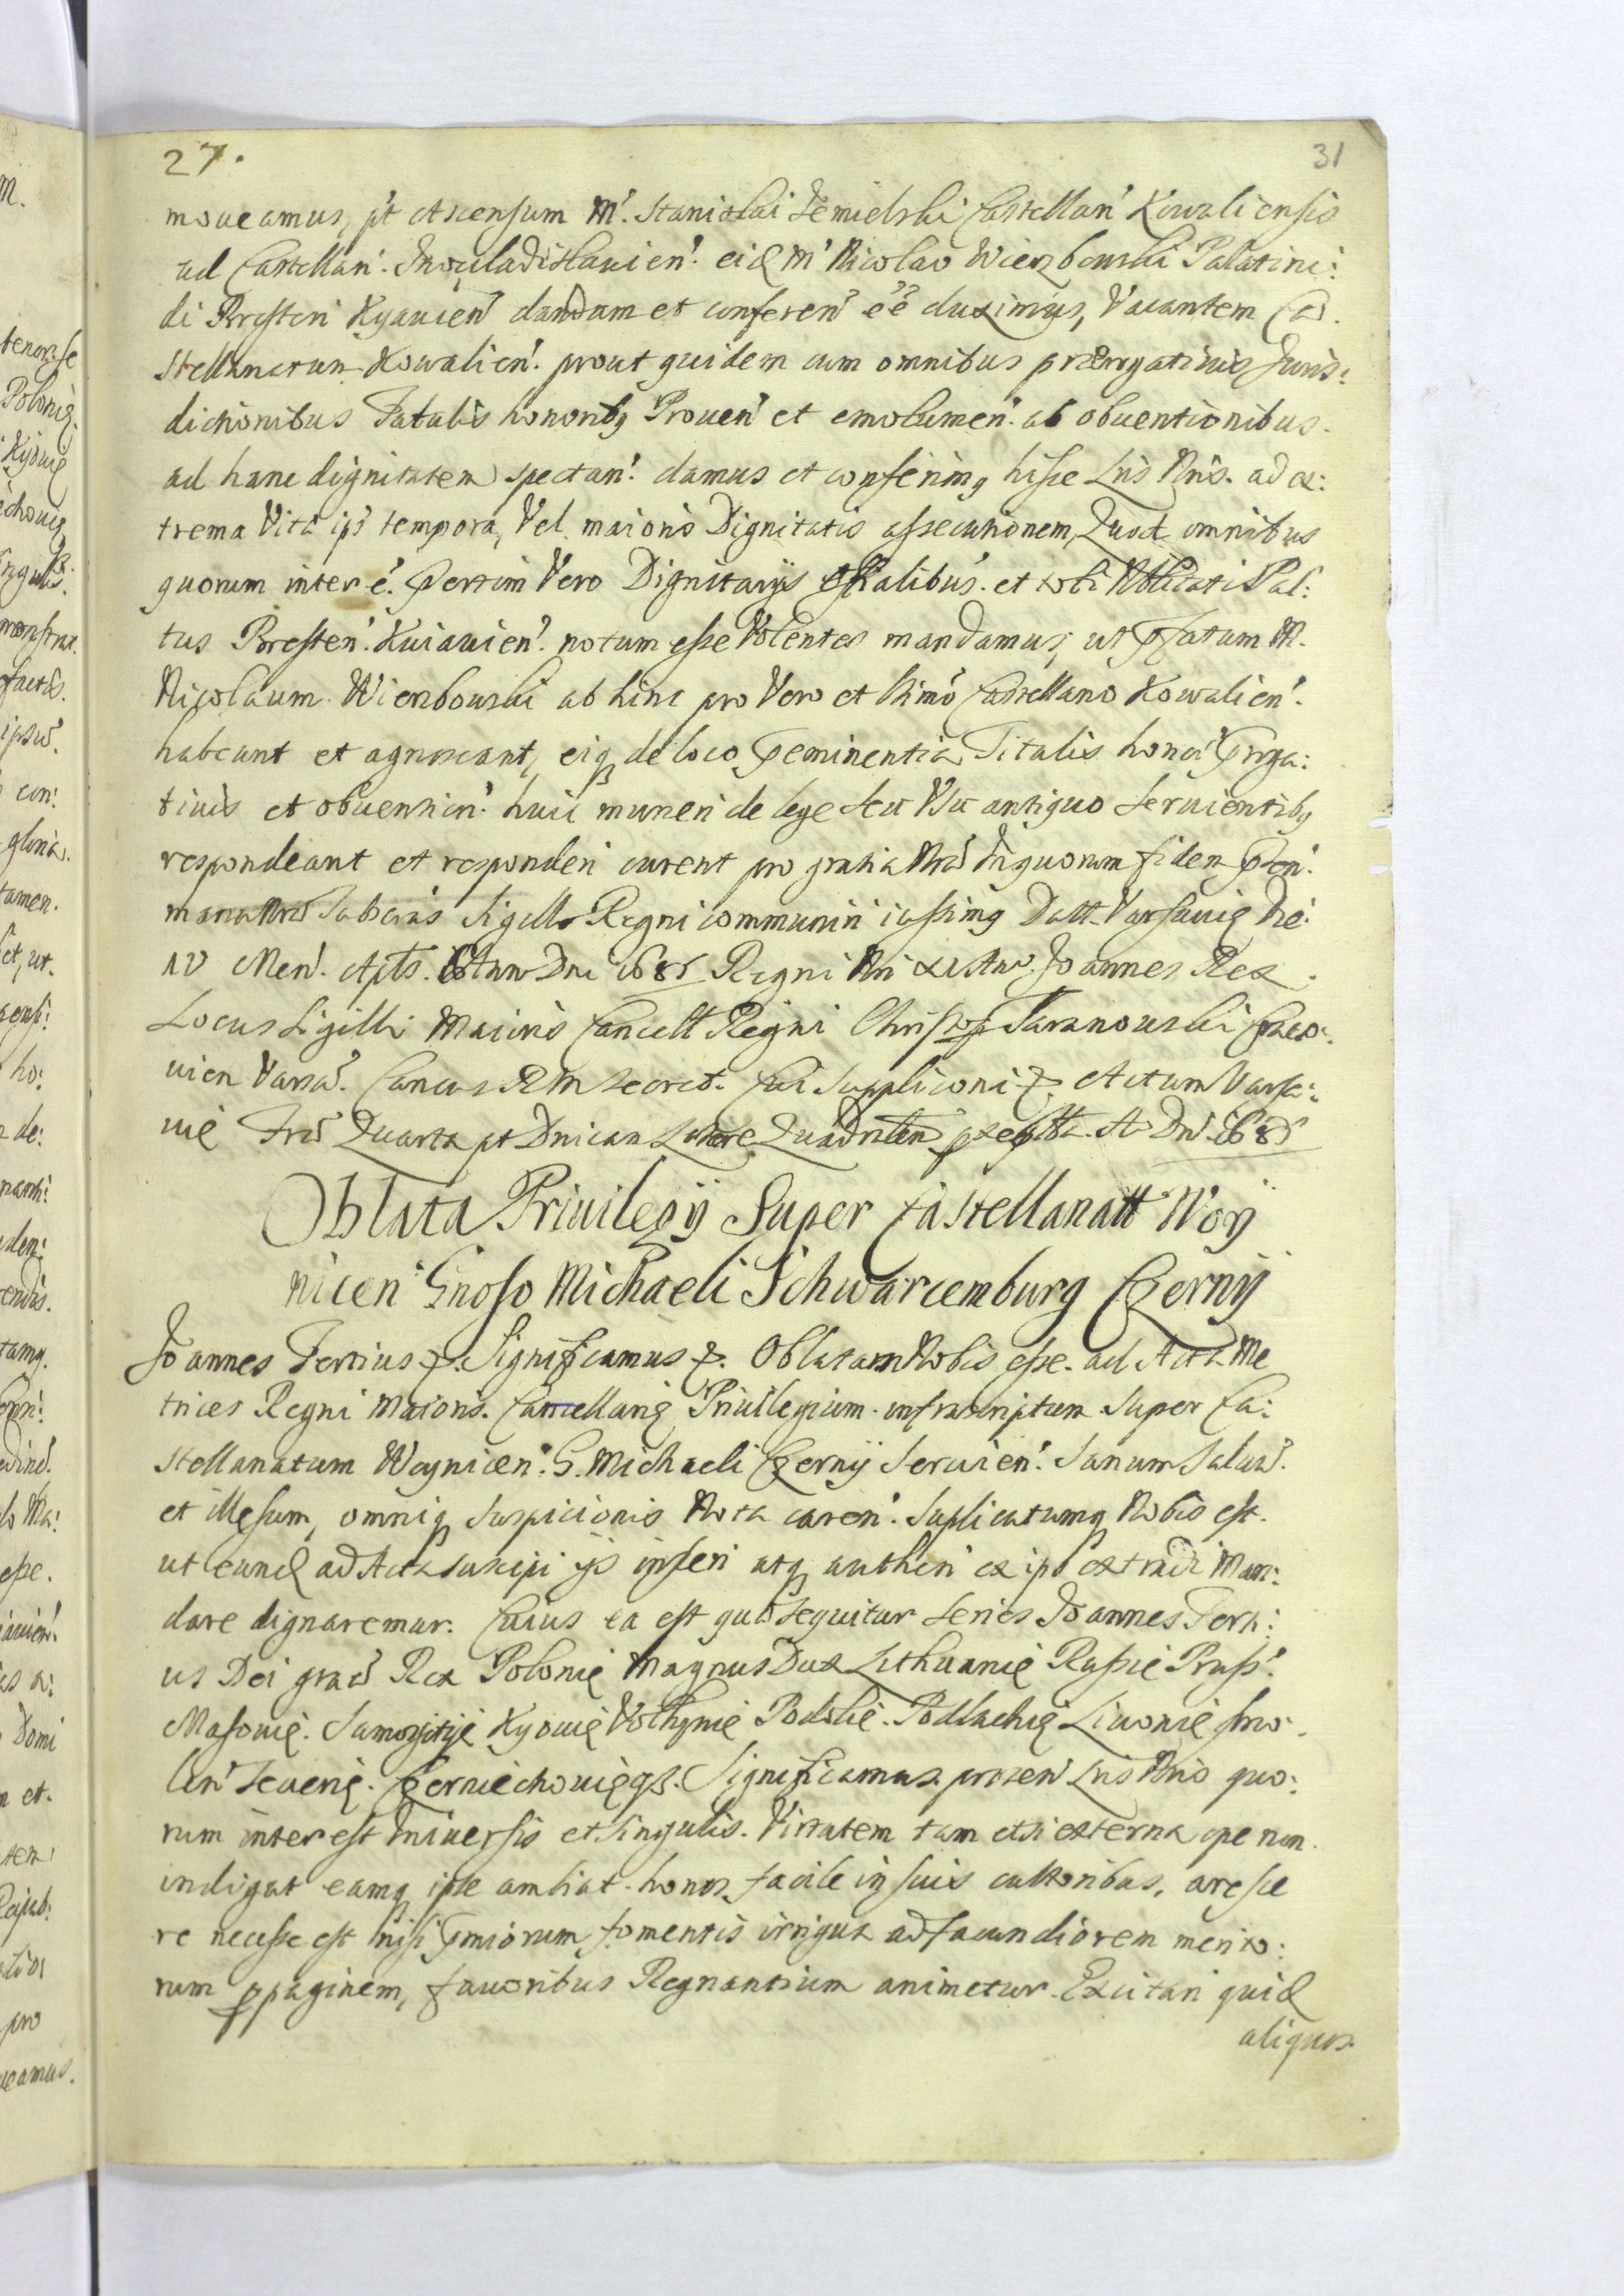 27.
31
moveamus, pt Ascensum M. Stanislai Jemielski Castellan Kowaliensis
ad Castellan. Inowladislavien. eid M Nicolao Wierzbowski Palatini:
di Bresten Kyavien dandam et conferen ee duximus, Vacantem Ca.
stellanatum Kowalien. prout quidem cum omnibus prærogativis Juris:
dictionibus Titulis honoribq Proven et emolumen. ab obventionibus.
ad hanc dignitatem spectan. damus et conferimq hisce Lris Nris. ad ex:
trema Vitæ ips tempora, Vel maioris Dignitatis assecutionem, Quod omnibus
quorum inter e. Pertim Vero Dignitarijs Offialibus. et toti Nobilitati Pal:
tus Bresten. Kuiavien. notum esse Volentes mandamus, ut pfatum M.
Nicolaum Wierzbowski ab hinc pro Vero et Ltimo Castellano Kowalien.
habeant et agnoscant, eiq de loco Peminentia Titulis honor Prga:
tivis et obvention. huic muneri de lege seu Usu antiquo servientibq
respondeant et responderi curent pro gratia Nra In quorum fidem Pzen.
manu Nra Subscris Sigillo Regni communiri iussimq Datt Varsavię Die.
IV Men. Aplis. Anno Dni 1685 Regni Nri XI Ano. Joannes Rex.
Locus Sigilli Maioris Cancell Regni Christoph Taranowski Craco:
vien Varsa. Canus SRM Secret. Cui Supplicõni &. Actum Varsa:
vię Fria Quarta pt Dnicam Lætare Quadrlem pxe A Dni 1685
Oblata Privilegij Super Castellanatt Woy
nicen Gnoso Michaeli Schwarcemburg Czerny
Joannes Tertius &. Significamus &. Oblatam Nobis esse. ad Acta Me
trices Regni Maioris. Cancellarię Privilegium infrascriptum Super Ca:
stellanatum Woynicen. G. Michaeli Czerny Servien. Sanum Salvu.
et illęsum, omniq suspicionis Nota caren. Suplicatumq Nobis est.
ut eund ad Acta suscipi ijs inseri atq authen ex ips extradi Man:
dare dignaremur. Cuius ea est quæ sequitur series Joannes Terti:
us Dei gra Rex Polonię Magnus Dux Lithuanię Russię Pruss.
Masovię. Samogitię Kyovię Volhynię Podolię. Podlachię Livonię Smo.
len Severię. Czerniechovięqs. Significamus præsen Lris Nris quo:
rum interest Universis et Singulis. Virtutem tam etsi externa ope non.
indigat eamq ipse ambiat honos facile in suis cultoribus, aresce
re necesse est nisi Pmiorum fomentis irrigua ad facundiorem merito:
rum ppaginem, favoribus Regnantium animetur. Excitari quid
aliquos.